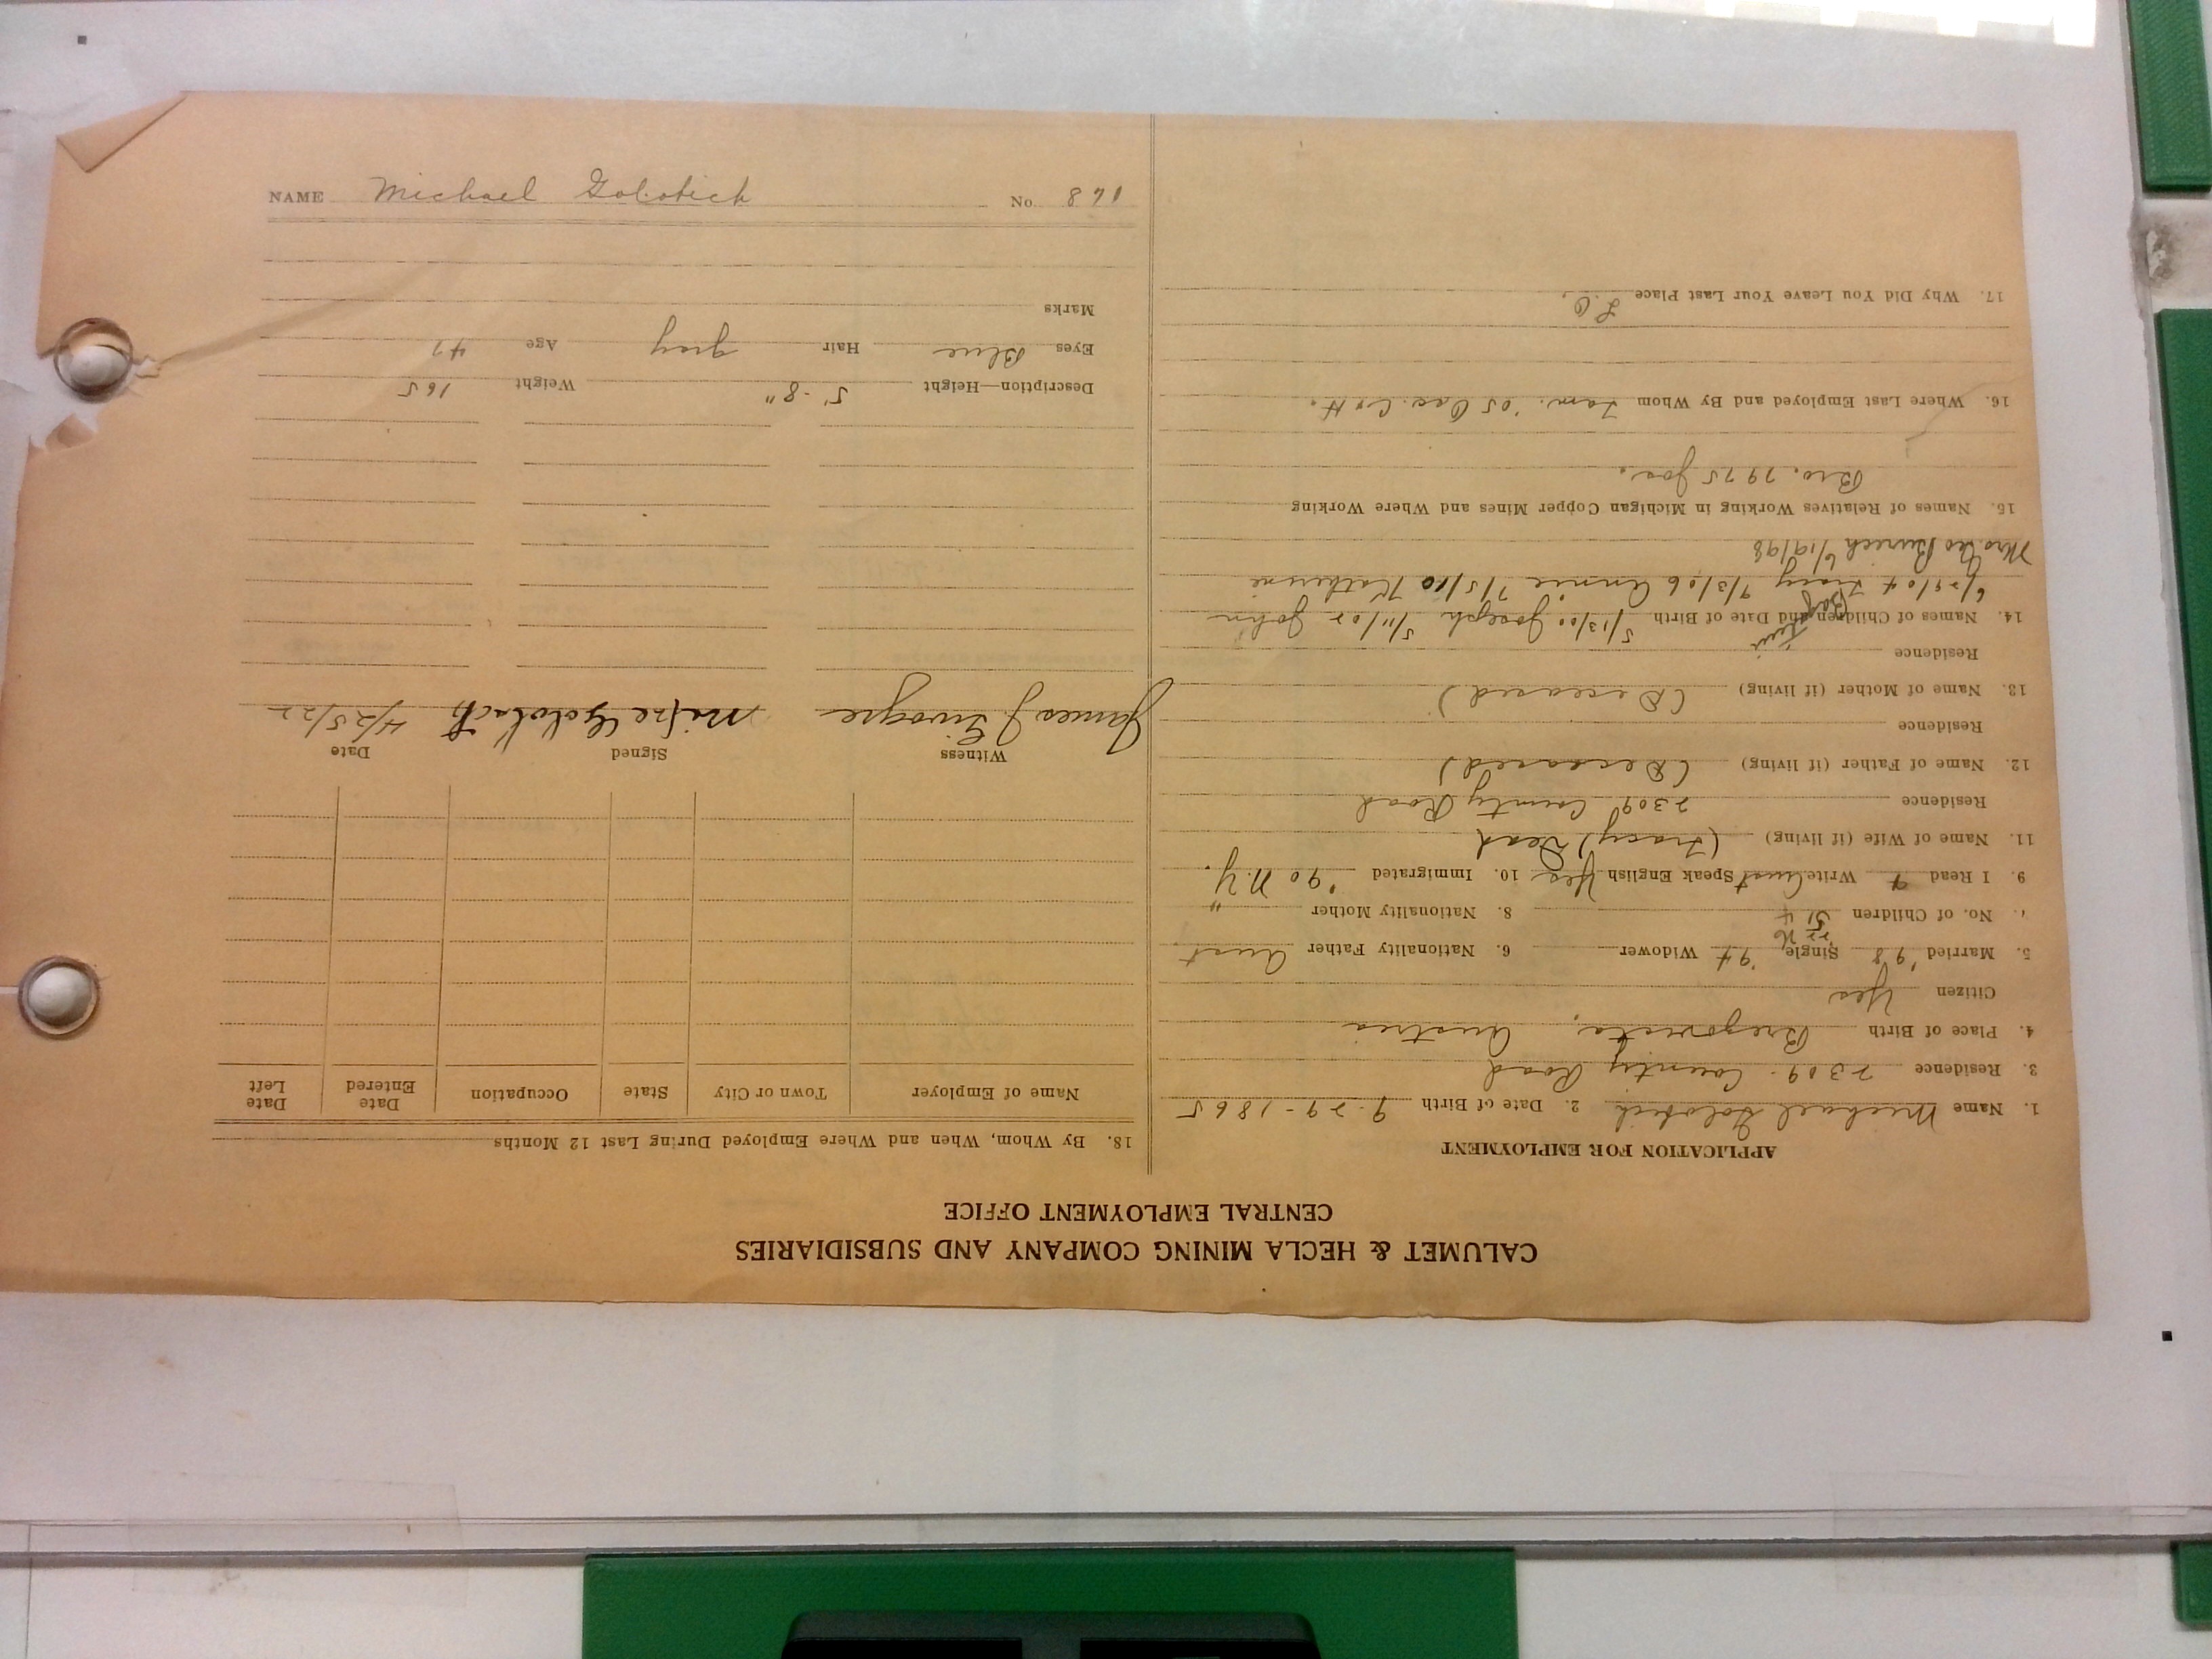 CALUMET & HECLA MINING COMPANY AND SUBSIDIARIES
CENTRAL EMPLOYMENT OFFICE
APPLICATION FOR EMPLOYMENT
1. Name Michael Golobich 2. Date of Birth 9-29-1865
3. Residence 2309 County Road
4. Place of Birth Austria
Citizen Yes
5. Married '98 Single '94 Widower 6. Nationality Father Aust
7. No. of Children 8. Nationality Mother "
9. I Read & Write Aust Speak English Yes 10. Immigrated '90 N.Y.
11. Name of Wife (if living) (Tracy) Dead
Residence 2309 County Road
12. Name of Father (if living) (Deceased)
Residence
13. Name of Mother (if living) (Deceased)
Residence
14. Names of Children and Date of Birth 5/13/00 Joseph 5/11/02 John
6/29/04 Tracy 9/3/06 Annie 7/5/10 Katherine
Mrs. 6/19/98
15. Names of Relatives Working in Michigan Copper Mines and Where Working
Bro. 7975 Joe.
16. Where Last Employed and By Whom Tam. '05 Occ. C&H.
17. Why Did You Leave Your Last Place L.O.
18. By Whom, When and Where Employed During Last 12 Months
Name of Employer Town or City State Occupation Date Entered Date Left
Witness Signed Date
James J. 4/25/22
Description—Height 5'-8" Weight 165
Eyes Blue Hair gray Age 47
Marks
NAME Michael Golobich No. 8